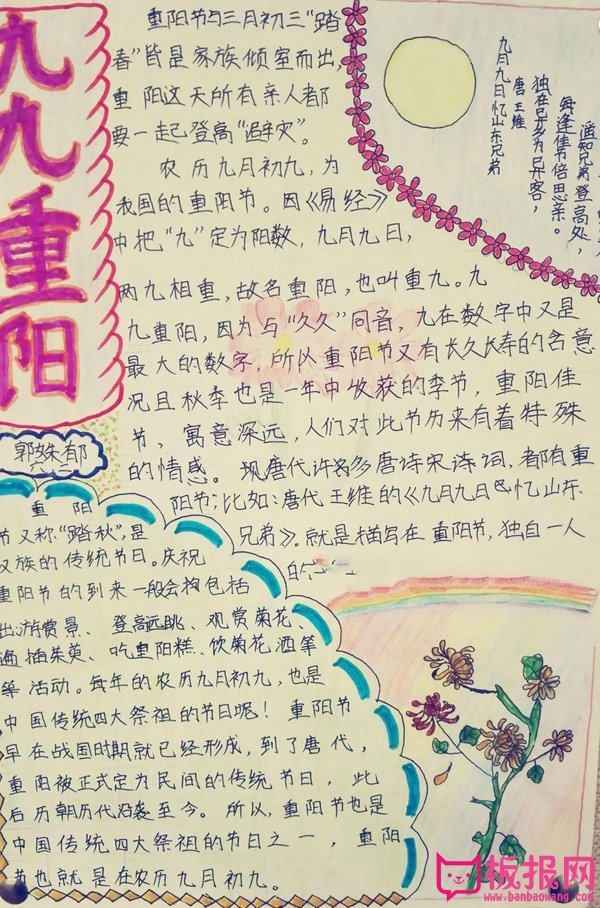 九九重阳
郭姝郁
重阳节与三月初三“踏
春”皆是家族倾室而出，
重阳这天所有亲人都
要一起登高“避灾”。
农历九月初九，为
我国的重阳节。因《易经》
中把“九”定为阳数，九月九日，
两九相重，故名重阳，也叫重九。九
九重阳，因为与“久久”同音，九在数字中又是
最大的数字，所以重阳节又有长久长寿的含意
况且秋季也是一年中收获的季节，重阳佳
节，寓意深远，人们对此节历来有着特殊
的情感。现唐代许多唐诗宋诗词，都有重
阳节；比如：唐代王维的《九月九日忆山东
兄弟》。就是描写在重阳节，独自一人
的
九月九日忆山东兄弟
唐 王维
独在异乡为异客，
每逢佳节倍思亲。
遥知兄弟登高处，
重阳
节又称“踏秋”，是
汉族的传统节日。庆祝
重阳节的到来一般会包括
出游赏景、登高远眺、观赏菊花、
遍插茱萸、吃重阳糕、饮菊花酒等
等活动。每年的农历九月初九，也是
中国传统四大祭祖的节日呢！重阳节
早在战国时期就已经形成，到了唐代，
重阳被正式定为民间的传统节日，此
后历朝历代沿袭至今。所以，重阳节也是
中国传统四大祭祖的节日之一，重阳
节也就是在农历九月初九。
板报网
www.banbaowang.com